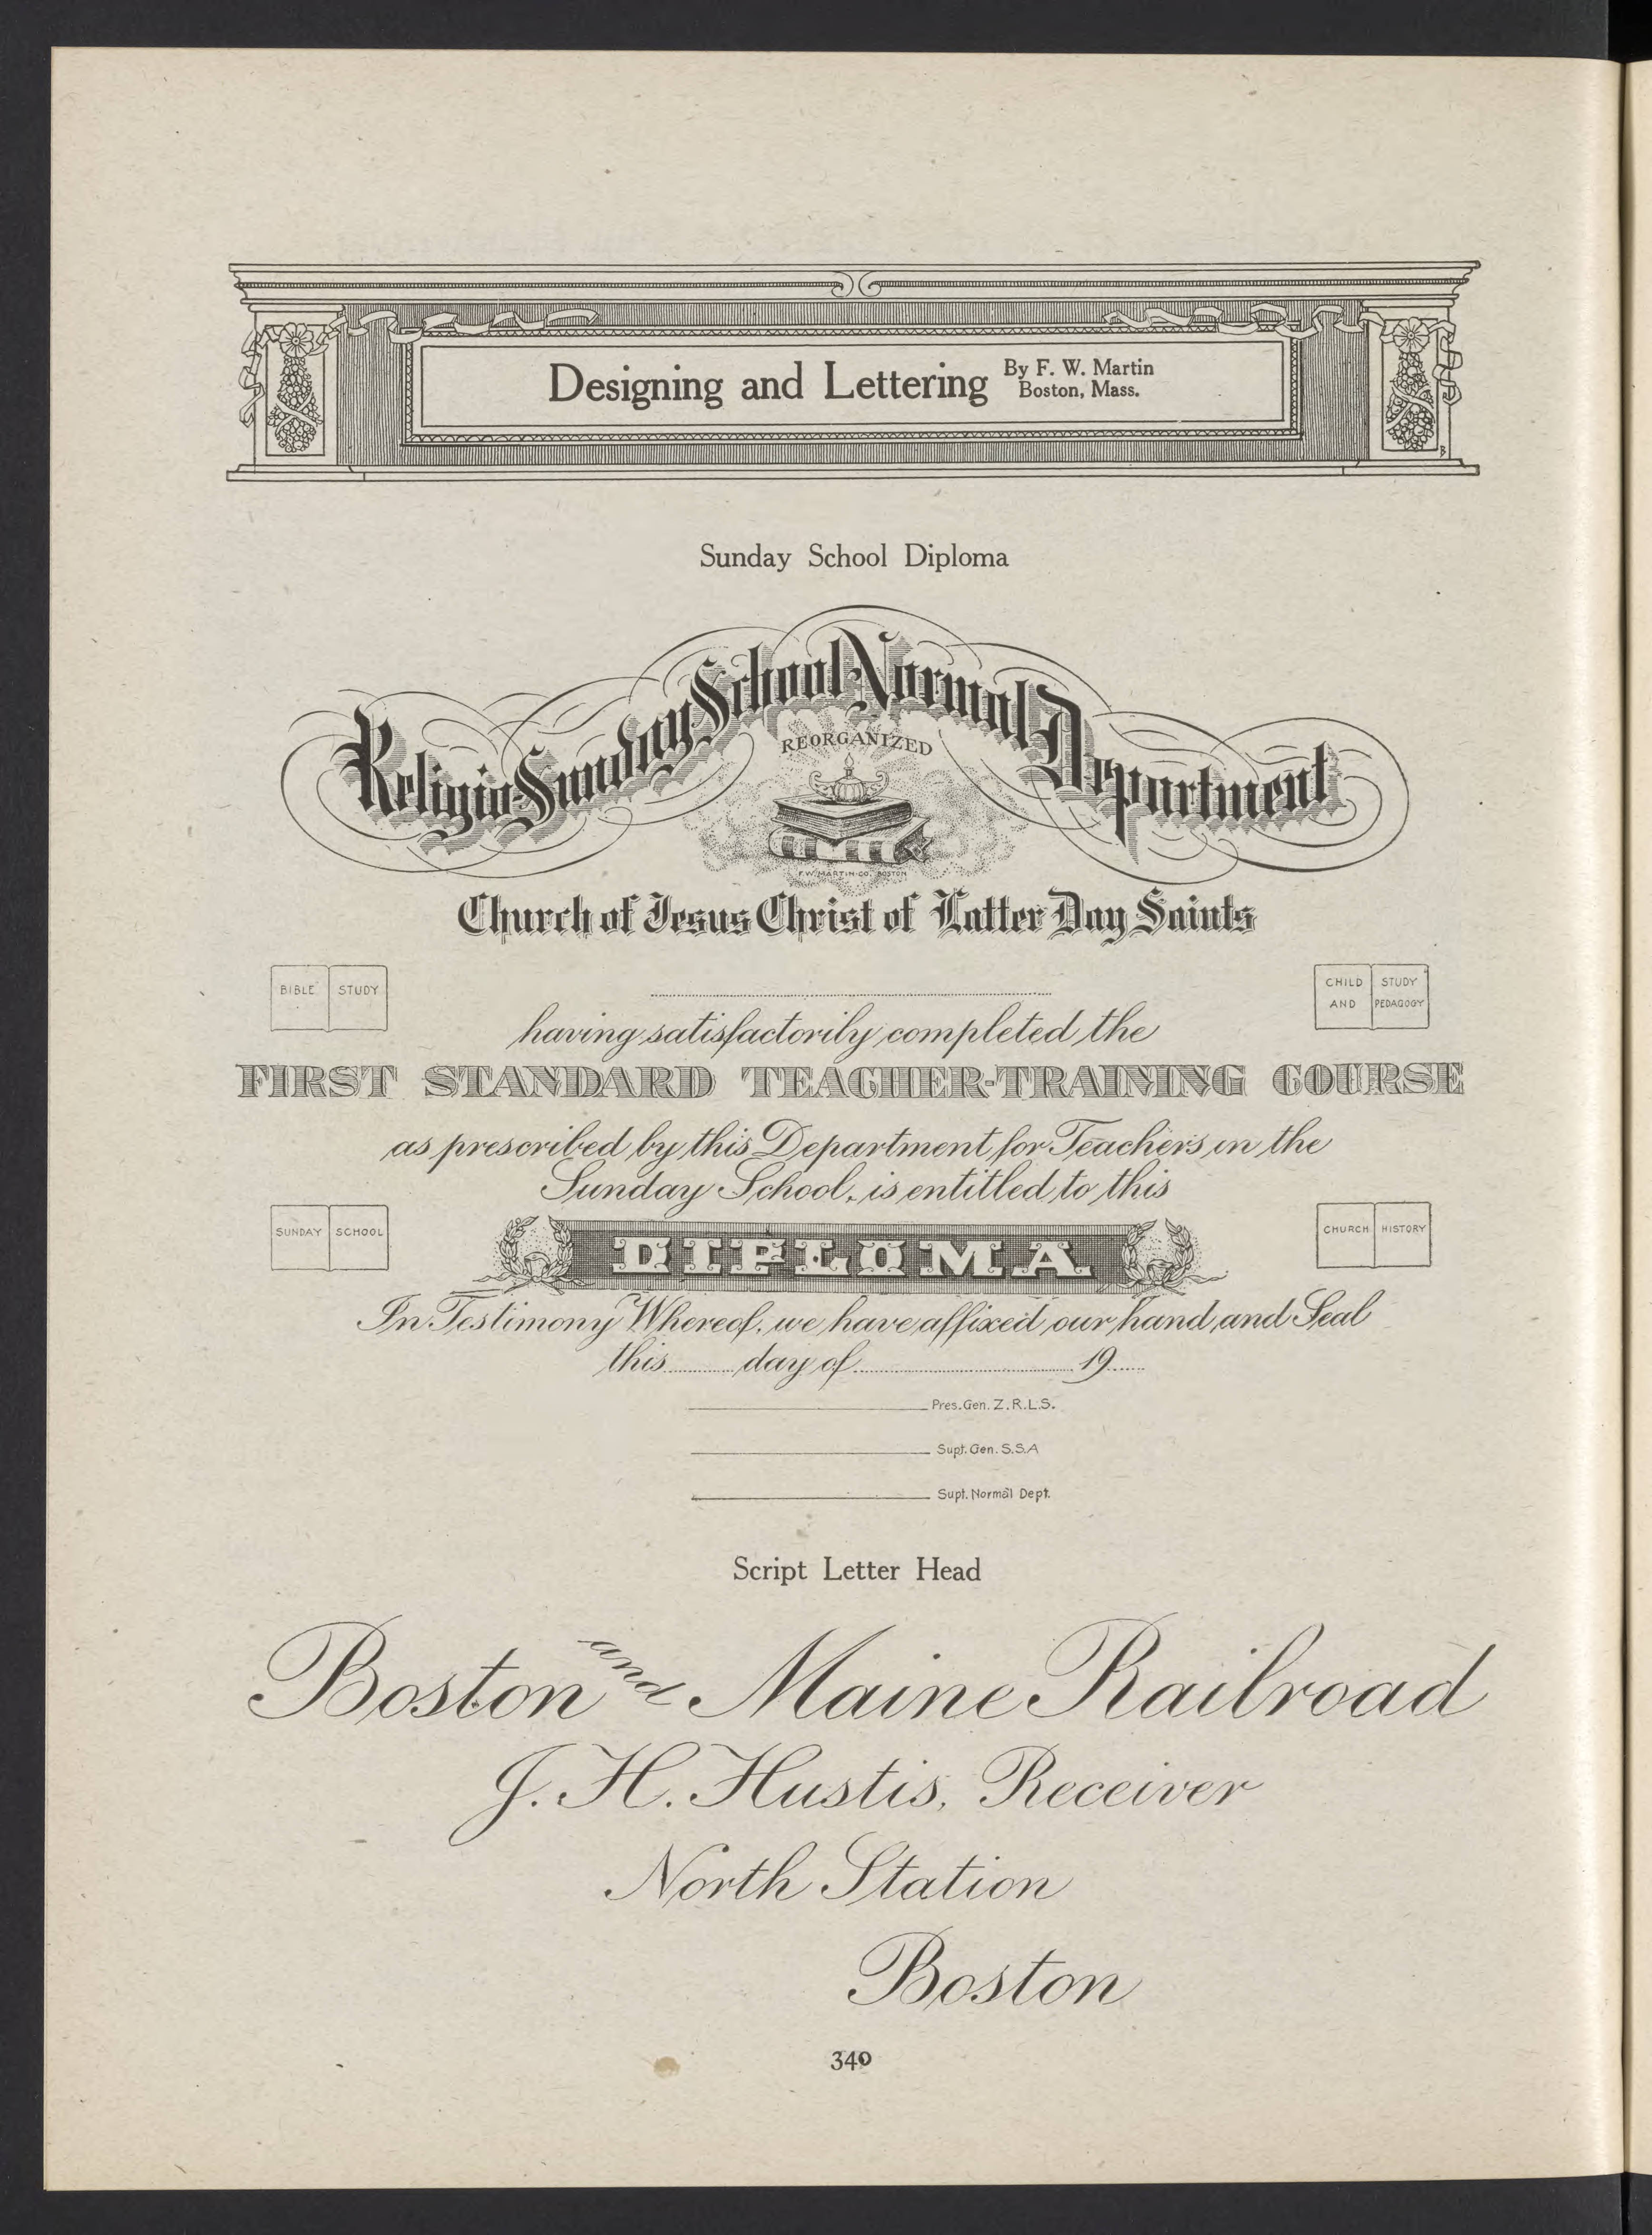 Designing and Lettering By F. W. Martin
Boston, Mass.
B
Sunday School Diploma
Religio Sunday School Normal Department
REORGANIZED
F.W. MARTIN CO. BOSTON
Church of Jesus Christ of Latter Day Saints
BIBLE STUDY
CHILD STUDY
AND PEDAGOGY
having satisfactorily completed the
FIRST STANDARD TEACHER-TRAINING COURSE
as prescribed by this Department for Teachers in the
Sunday School, is entitled to this
SUNDAY SCHOOL
DIPLOMA
CHURCH HISTORY
In Testimony Whereof, we have affixed our hand and Seal
this day of 19
Pres. Gen. Z.R.L.S.
Supt. Gen. S.S.A
Supt. Normal Dept.
Script Letter Head
Boston and Maine Railroad
J. H. Hustis, Receiver
North Station
Boston
340